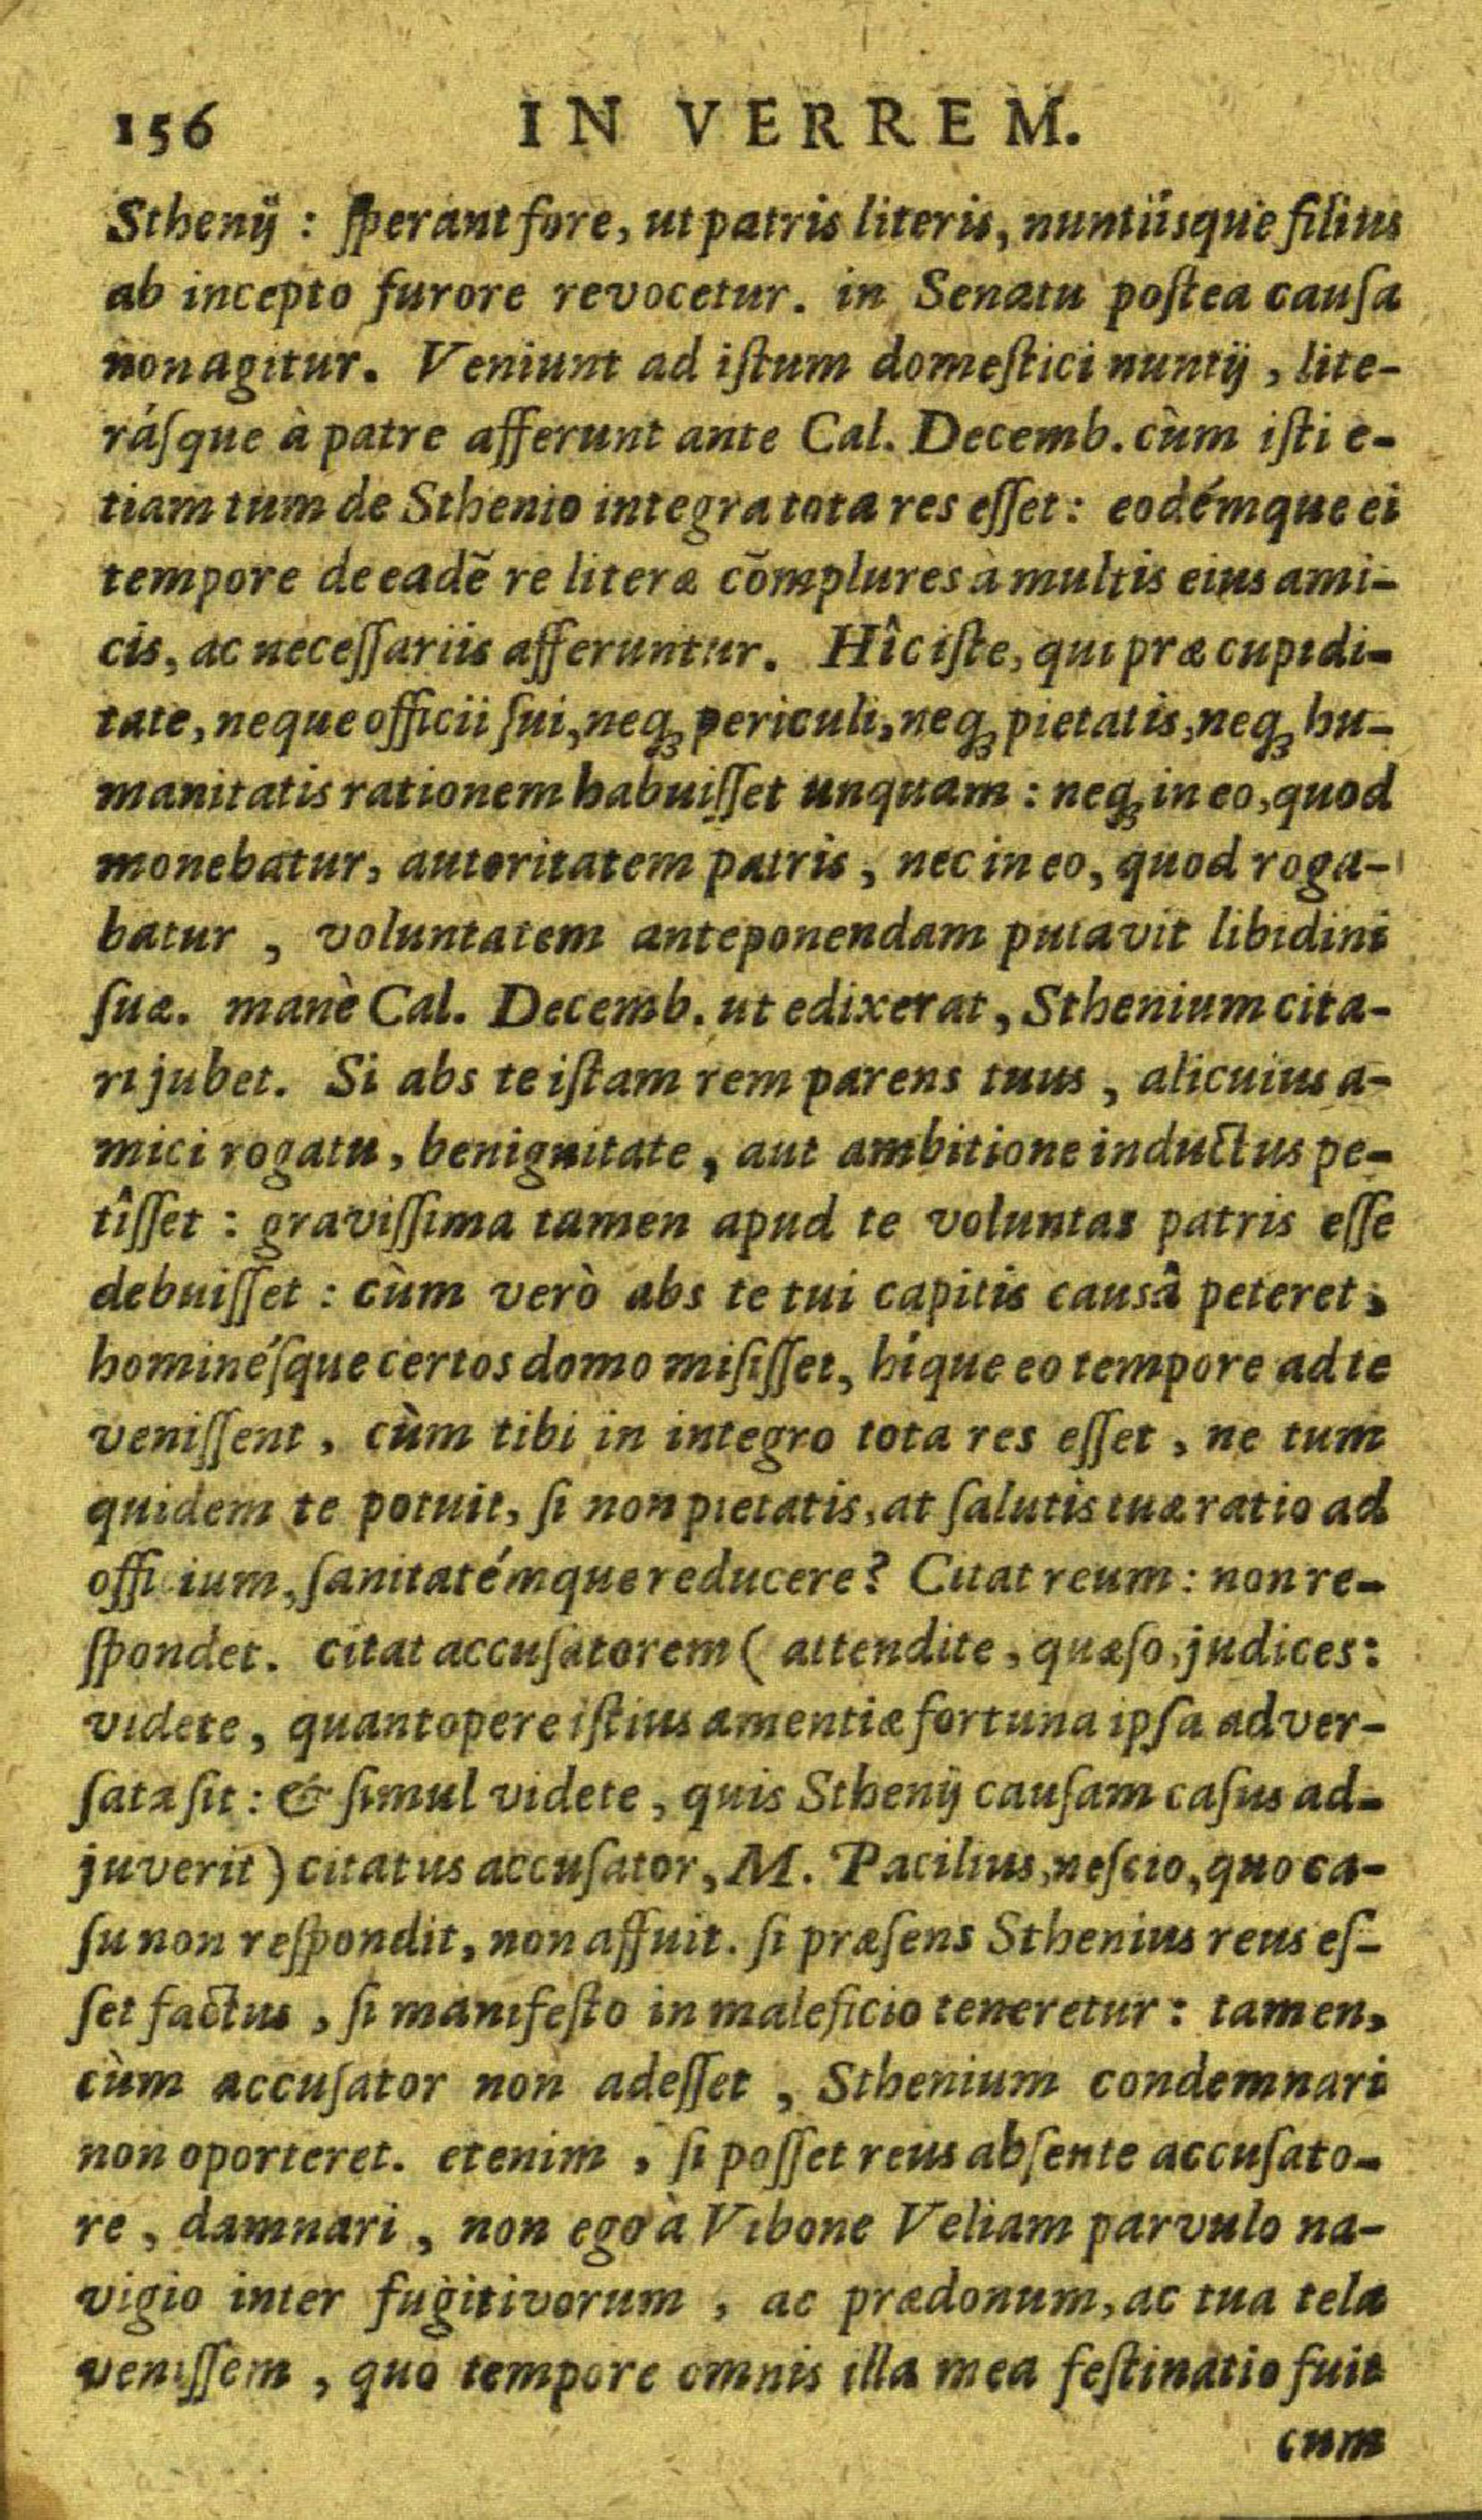 156 IN VERREM.
Sthenij : ſperant fore, ut patris literis, nuntiísque filius
ab incepto furore revocetur. in Senatu poſtea cauſa
non agitur. Veniunt ad iſtum domeſtici nuntij , lite-
ráſque à patre afferunt ante Cal. Decemb. cùm iſti e-
tiam tum de Sthenio integra tota res eſſet : eodémque ei
tempore de eadẽ re literæ cõmplures à multis eius ami-
cis, ac neceſſariis afferuntur. Hîc iſte, qui præ cupidi-
tate, neque officii ſui, neq; periculi, neq; pietatis, neq; hu-
manitatis rationem habuiſſet unquam : neq; in eo, quod
monebatur, autoritatem patris , nec in eo, quod roga-
batur , voluntatem anteponendam putavit libidini
ſuæ. manè Cal. Decemb. ut edixerat , Sthenium cita-
ri jubet. Si abs te iſtam rem parens tuus , alicuius a-
mici rogatu, benignitate , aut ambitione inductus pe-
tîſſet : graviſſima tamen apud te voluntas patris eſſe
debuiſſet : cùm verò abs te tui capitis causâ peteret ;
hominéſque certos domo miſiſſet, híque eo tempore ad te
veniſſent , cùm tibi in integro tota res eſſet , ne tum
quidem te potuit, ſi non pietatis, at ſalutis tuæ ratio ad
officium, ſanitatémque reducere? Citat reum : non re-
ſpondet. citat accuſatorem ( attendite , quæſo, judices :
videte , quantopere iſtius amentiæ fortuna ipſa adver-
ſata ſit : & ſimul videte , quis Sthenij cauſam caſus ad-
juverit ) citatus accuſator, M. Pacilius, neſcio, quo ca-
ſu non reſpondit, non affuit. ſi præſens Sthenius reus eſ-
ſet factus , ſi manifeſto in maleficio teneretur : tamen,
cùm accuſator non adeſſet , Sthenium condemnari
non oporteret. etenim , ſi poſſet reus abſente accuſato-
re , damnari , non ego à Vibone Veliam parvulo na-
vigio inter fugitivorum , ac prædonum, ac tua tela
veniſſem , quo tempore omnis illa mea feſtinatio fuit
cum